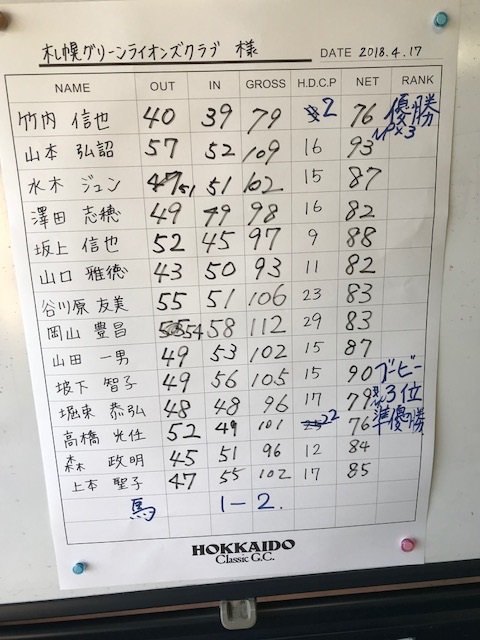 札幌グリーンライオンズクラブ 様 DATE 2018.4.17
NAME OUT IN GROSS H.D.C.P NET RANK
竹内 信也 40 39 79 2 76 優勝
NPX3
山本 弘詔 57 52 109 16 93
水木 ジュン 51 51 102 15 87
澤田 志穂 49 49 98 16 82
坂上 信也 52 45 97 9 88
山口 雅徳 43 50 93 11 82
谷川原 友美 55 51 106 23 83
岡山 豊昌 54 58 112 29 83
山田 一男 49 53 102 15 87
坡下 智子 49 56 105 15 90 ブービー
堀東 恭弘 48 48 96 17 79 3位
高橋 光仕 52 49 101 22 76 準優勝
森 政明 45 51 96 12 84
上本 聖子 47 55 102 17 85
馬 1-2.
HOKKAIDO
Classic G.C.